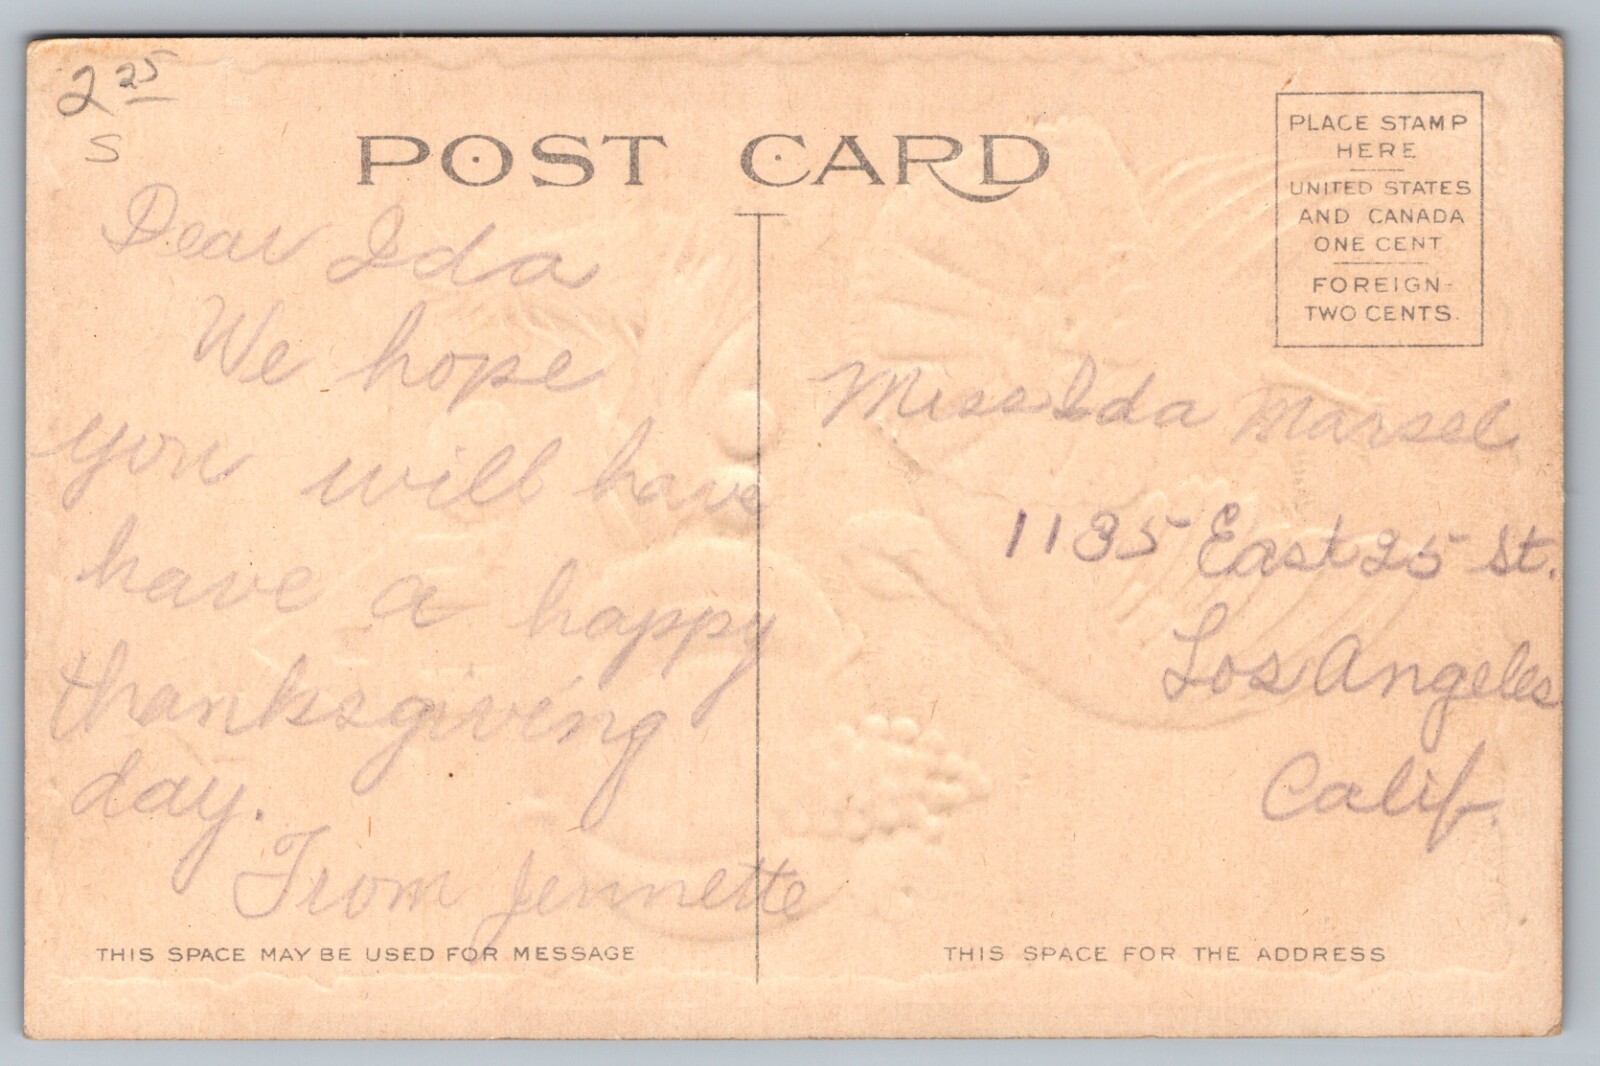 2 25
S
POST CARD
PLACE STAMP
HERE
UNITED STATES
AND CANADA
ONE CENT
FOREIGN-
TWO CENTS.
Dear Ida
We hope
you will have
have a happy
thanksgiving
day.
From Jennette
Miss Ida Marsel
1135 East 25 St.
Los Angeles
Calif.
THIS SPACE MAY BE USED FOR MESSAGE
THIS SPACE FOR THE ADDRESS